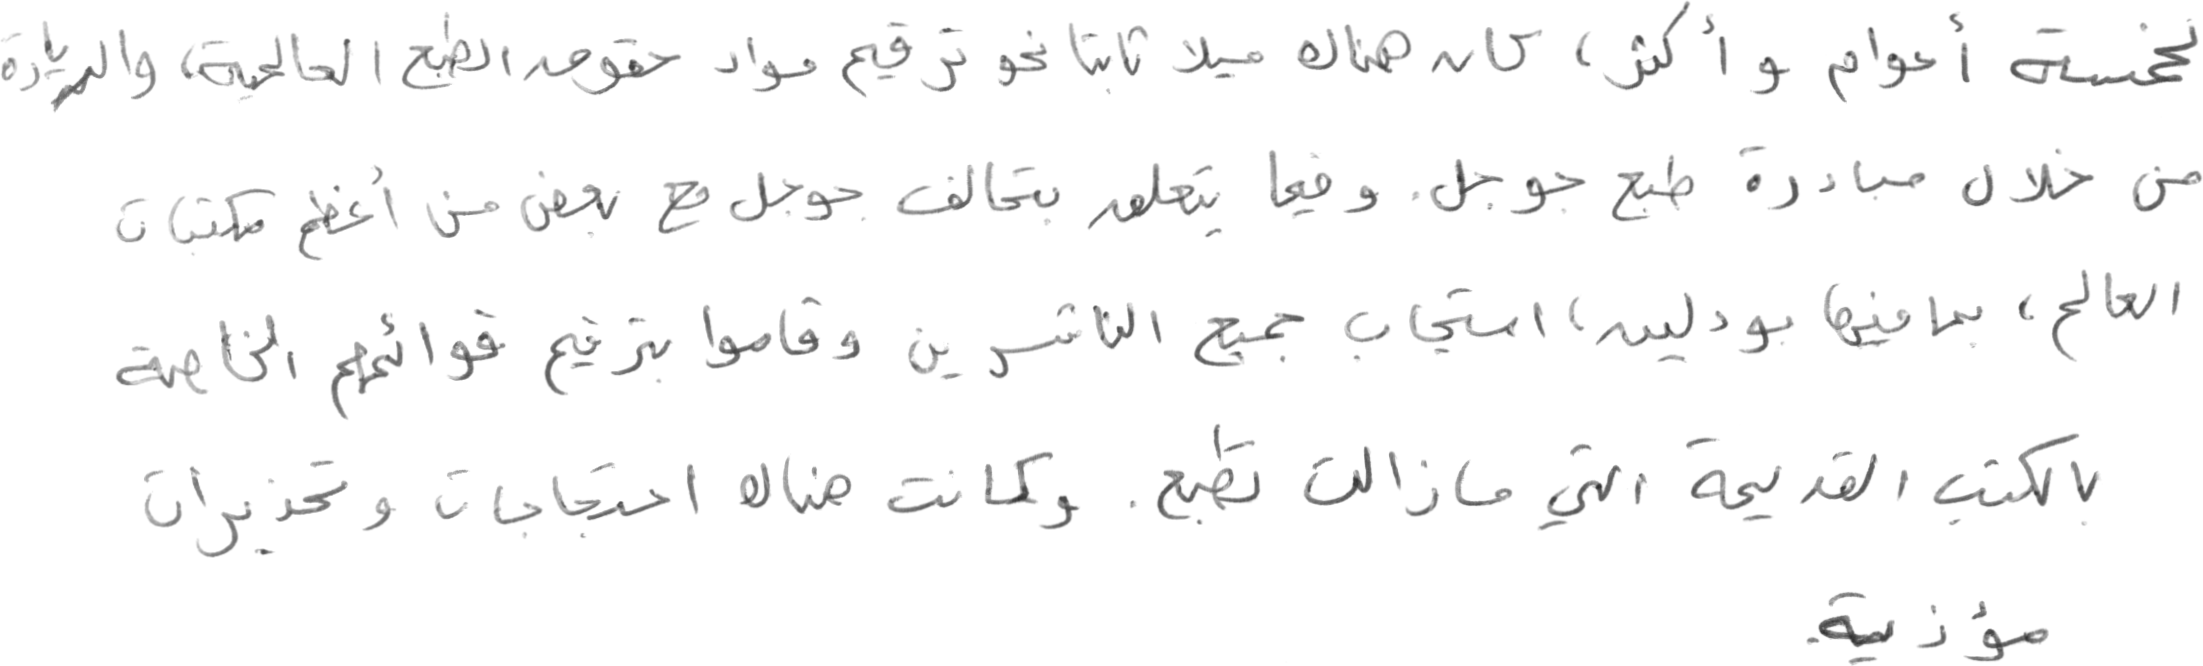 لخمسة أعوام وأكثر، كان هناك ميلا ثابتا نحو ترقيم مواد حقوق الطبع العالمية، والريادة
من خلال مبادرة طبع جوجل. وفيما يتعلق بتحالف جوجل مع بعض من أعظم مكتبات
العالم، بما فيها بودلين، استجاب جميع الناشرين وقاموا بترقيم قوائمهم الخاصة
بالكتب القديمة التي مازالت تطبع. وكانت هناك احتجاجات وتحذيرات
مؤذية.